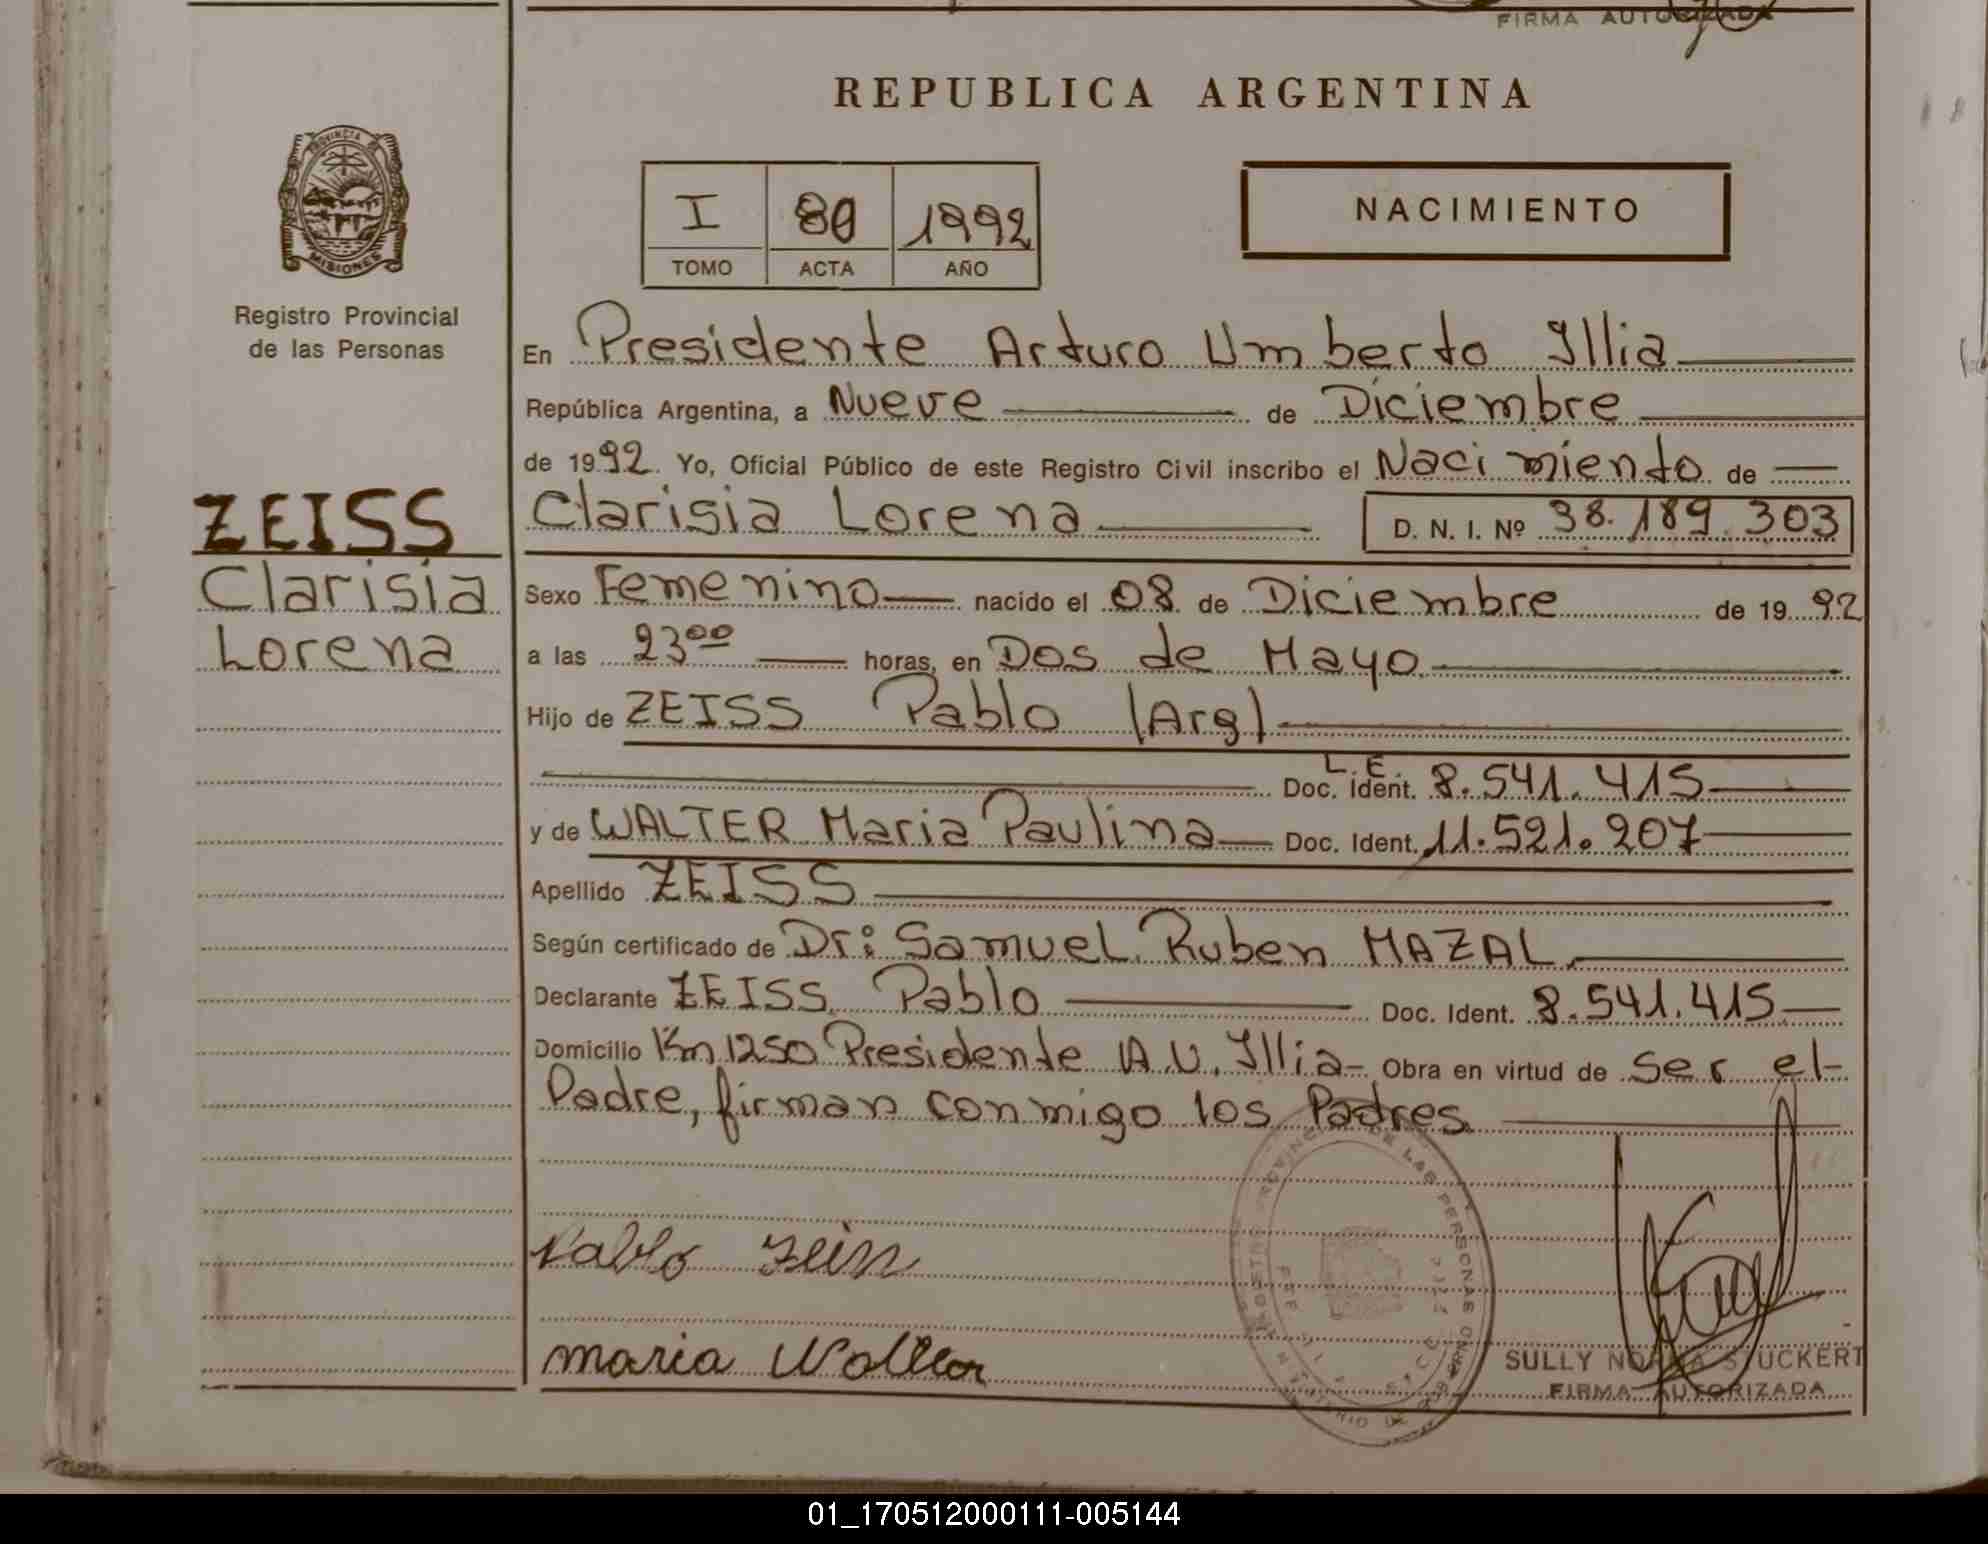 FIRMA AUTORIZADA
REPUBLICA ARGENTINA
PROVINCIA DE
MISIONES
Registro Provincial
de las Personas
I 80 1992
TOMO ACTA AÑO
NACIMIENTO
En Presidente Arturo Umberto Illia
República Argentina, a Nueve de Diciembre
de 1992. Yo, Oficial Público de este Registro Civil inscribo el Nacimiento de
Clarisia Lorena D. N. I. Nº 38.189.303
ZEISS
Clarisia
Lorena
Sexo Femenino nacido el 08 de Diciembre de 1992
a las 23⁰⁰ horas, en Dos de Mayo
Hijo de ZEISS Pablo (Arg)
L.E.
Doc. Ident. 8.541.415
y de WALTER Maria Paulina Doc. Ident. 11.521.207
Apellido ZEISS
Según certificado de Dr: Samuel Ruben MAZAL
Declarante ZEISS Pablo Doc. Ident. 8.541.415
Domicilio Km 1250 Presidente A.U. Illia- Obra en virtud de ser el-
Padre, firman conmigo los Padres
REGISTRO PROVINCIAL DE LAS PERSONAS
Pablo Zeiss
maria Walter
SULLY NORMA STUCKERT
FIRMA AUTORIZADA
01_170512000111-005144